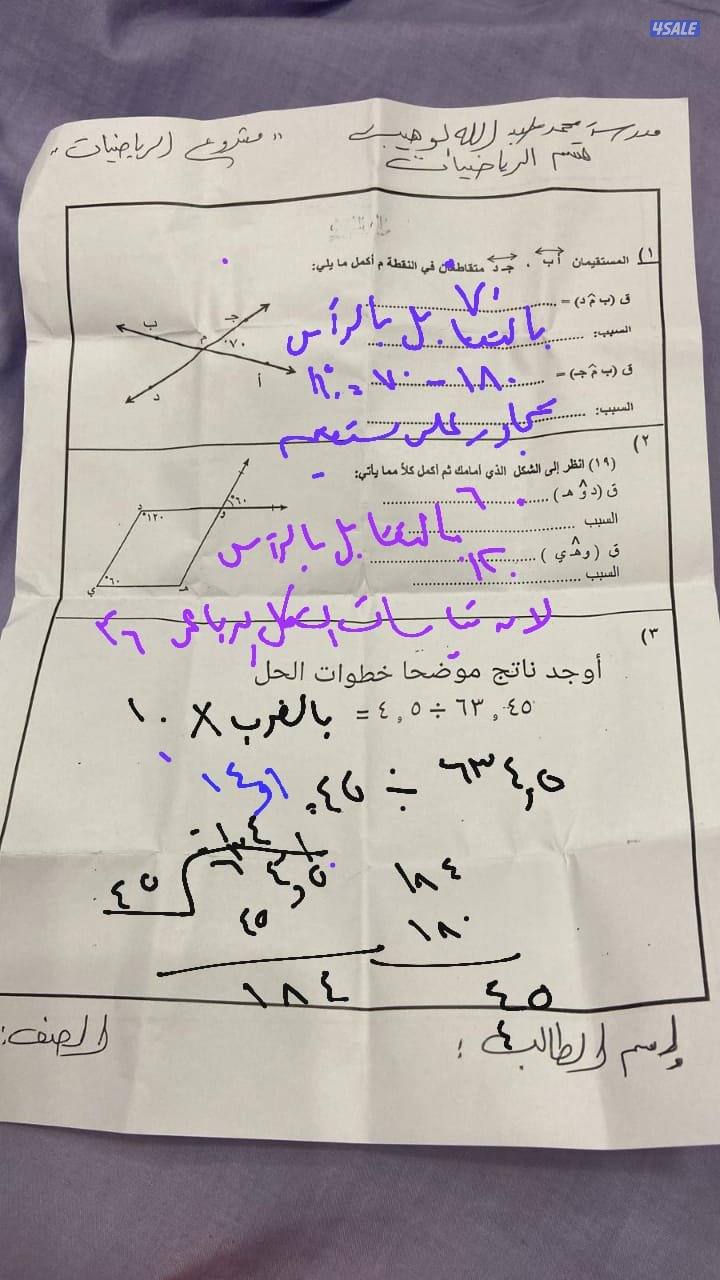 4SALE
مدرسة محمد عبد الله لوهيب
" مشروع الرياضيات "
قسم الرياضيات
١) المستقيمان أب ، جـ د متقاطعان في النقطة م أكمل ما يلي:
ق (ب م د) = ٧٠
السبب: بالتقابل بالرأس
ق (ب م جـ) = ١٨٠ − ٧٠ = ١١٠°
السبب: تجاور على مستقيم
جـ
ب
م
٧٠°
أ
د
٢)
(١٩) انظر إلى الشكل الذي أمامك ثم أكمل كلاً مما يأتي:
ق (د و هـ) ٦٠
السبب بالتقابل بالرأس
ق (و هـ ي) ١٢٠
السبب
لانه قياسات الشكل الرباعي ٣٦٠
د
١٢٠°
٦٠°
و
٦٠°
ي
هـ
٣)
أوجد ناتج موضحا خطوات الحل
٦٣,٤٥ ÷ ٤,٥ = بالضرب × ١٠
٦٣٤,٥ ÷ ٤٥ = ١٤,١
٤٥
٦٣٤,٥
٤٥
١٨٤
١٨٤
١٨٠
٤٥
إسم الطالب :
الصف: